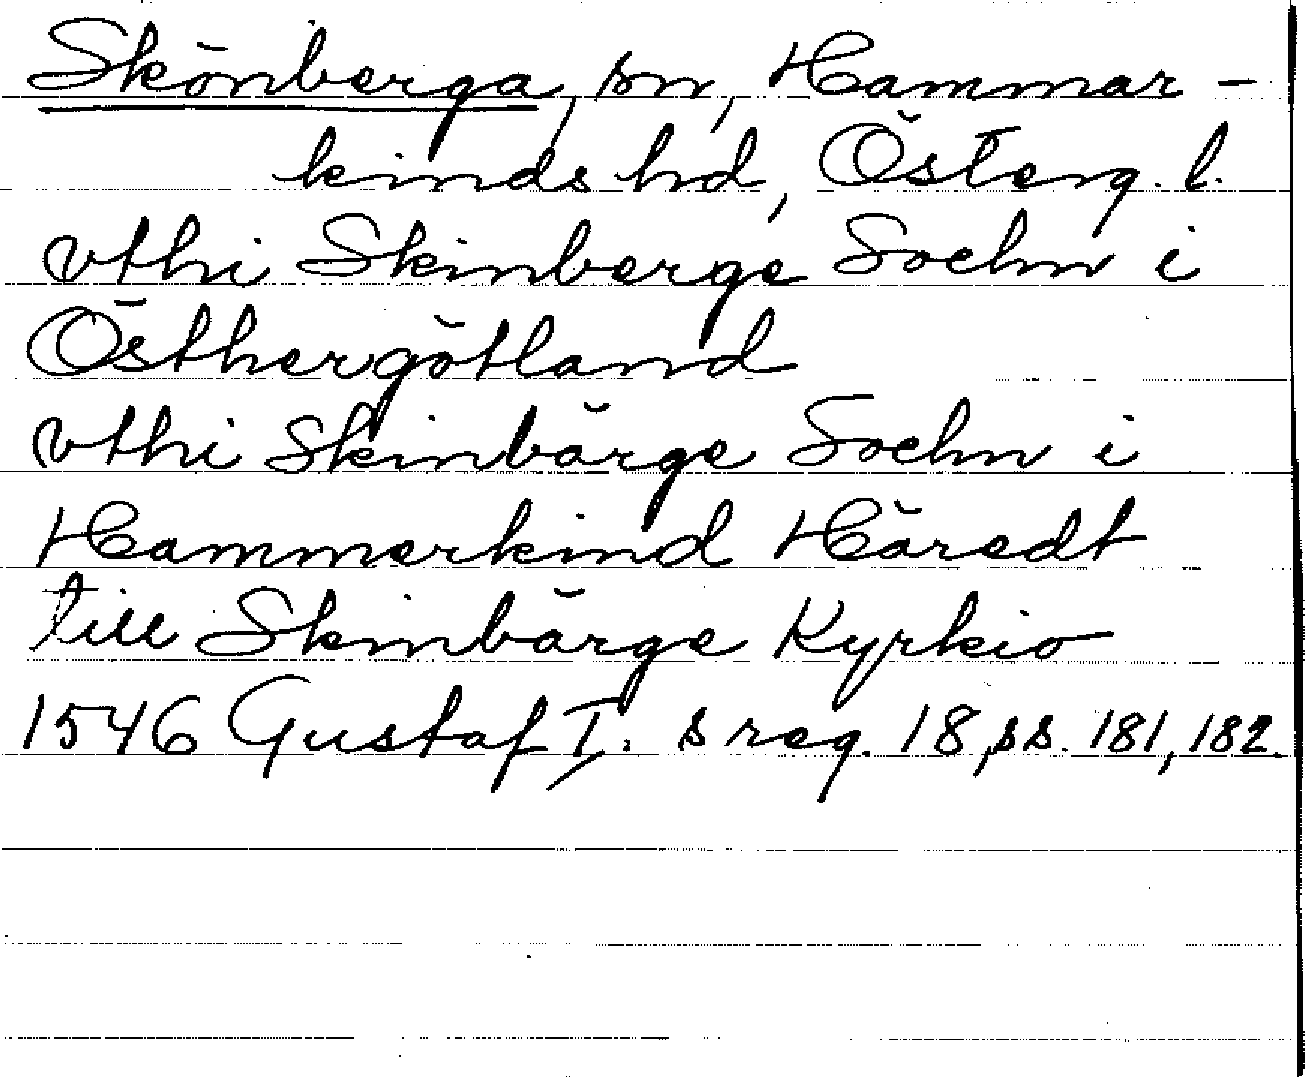 Skönberga, sn, Hammar-
kinds hd, Österg. l.
vthi Skinberge Sochn i
Östhergötland
vthi Skinbärge Sochn i
Hammerkind Häredt
till Skinbärge Kyrkio
1546 Gustaf I:s reg. 18, ss. 181, 182.